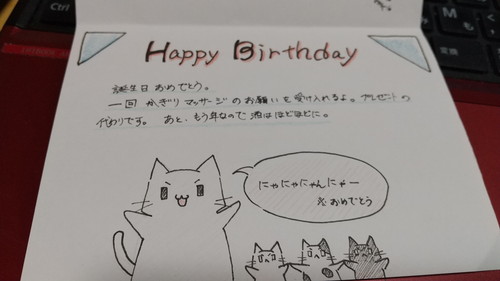 Ctrl
Happy Birthday
誕生日おめでとう。
一回かぎりマッサージのお願いを受け入れるよ。プレゼントの
代わりです。あと、もう年なので酒はほどほどに。
にゃにゃにゃんにゃー
※おめでとう
M
も
変換